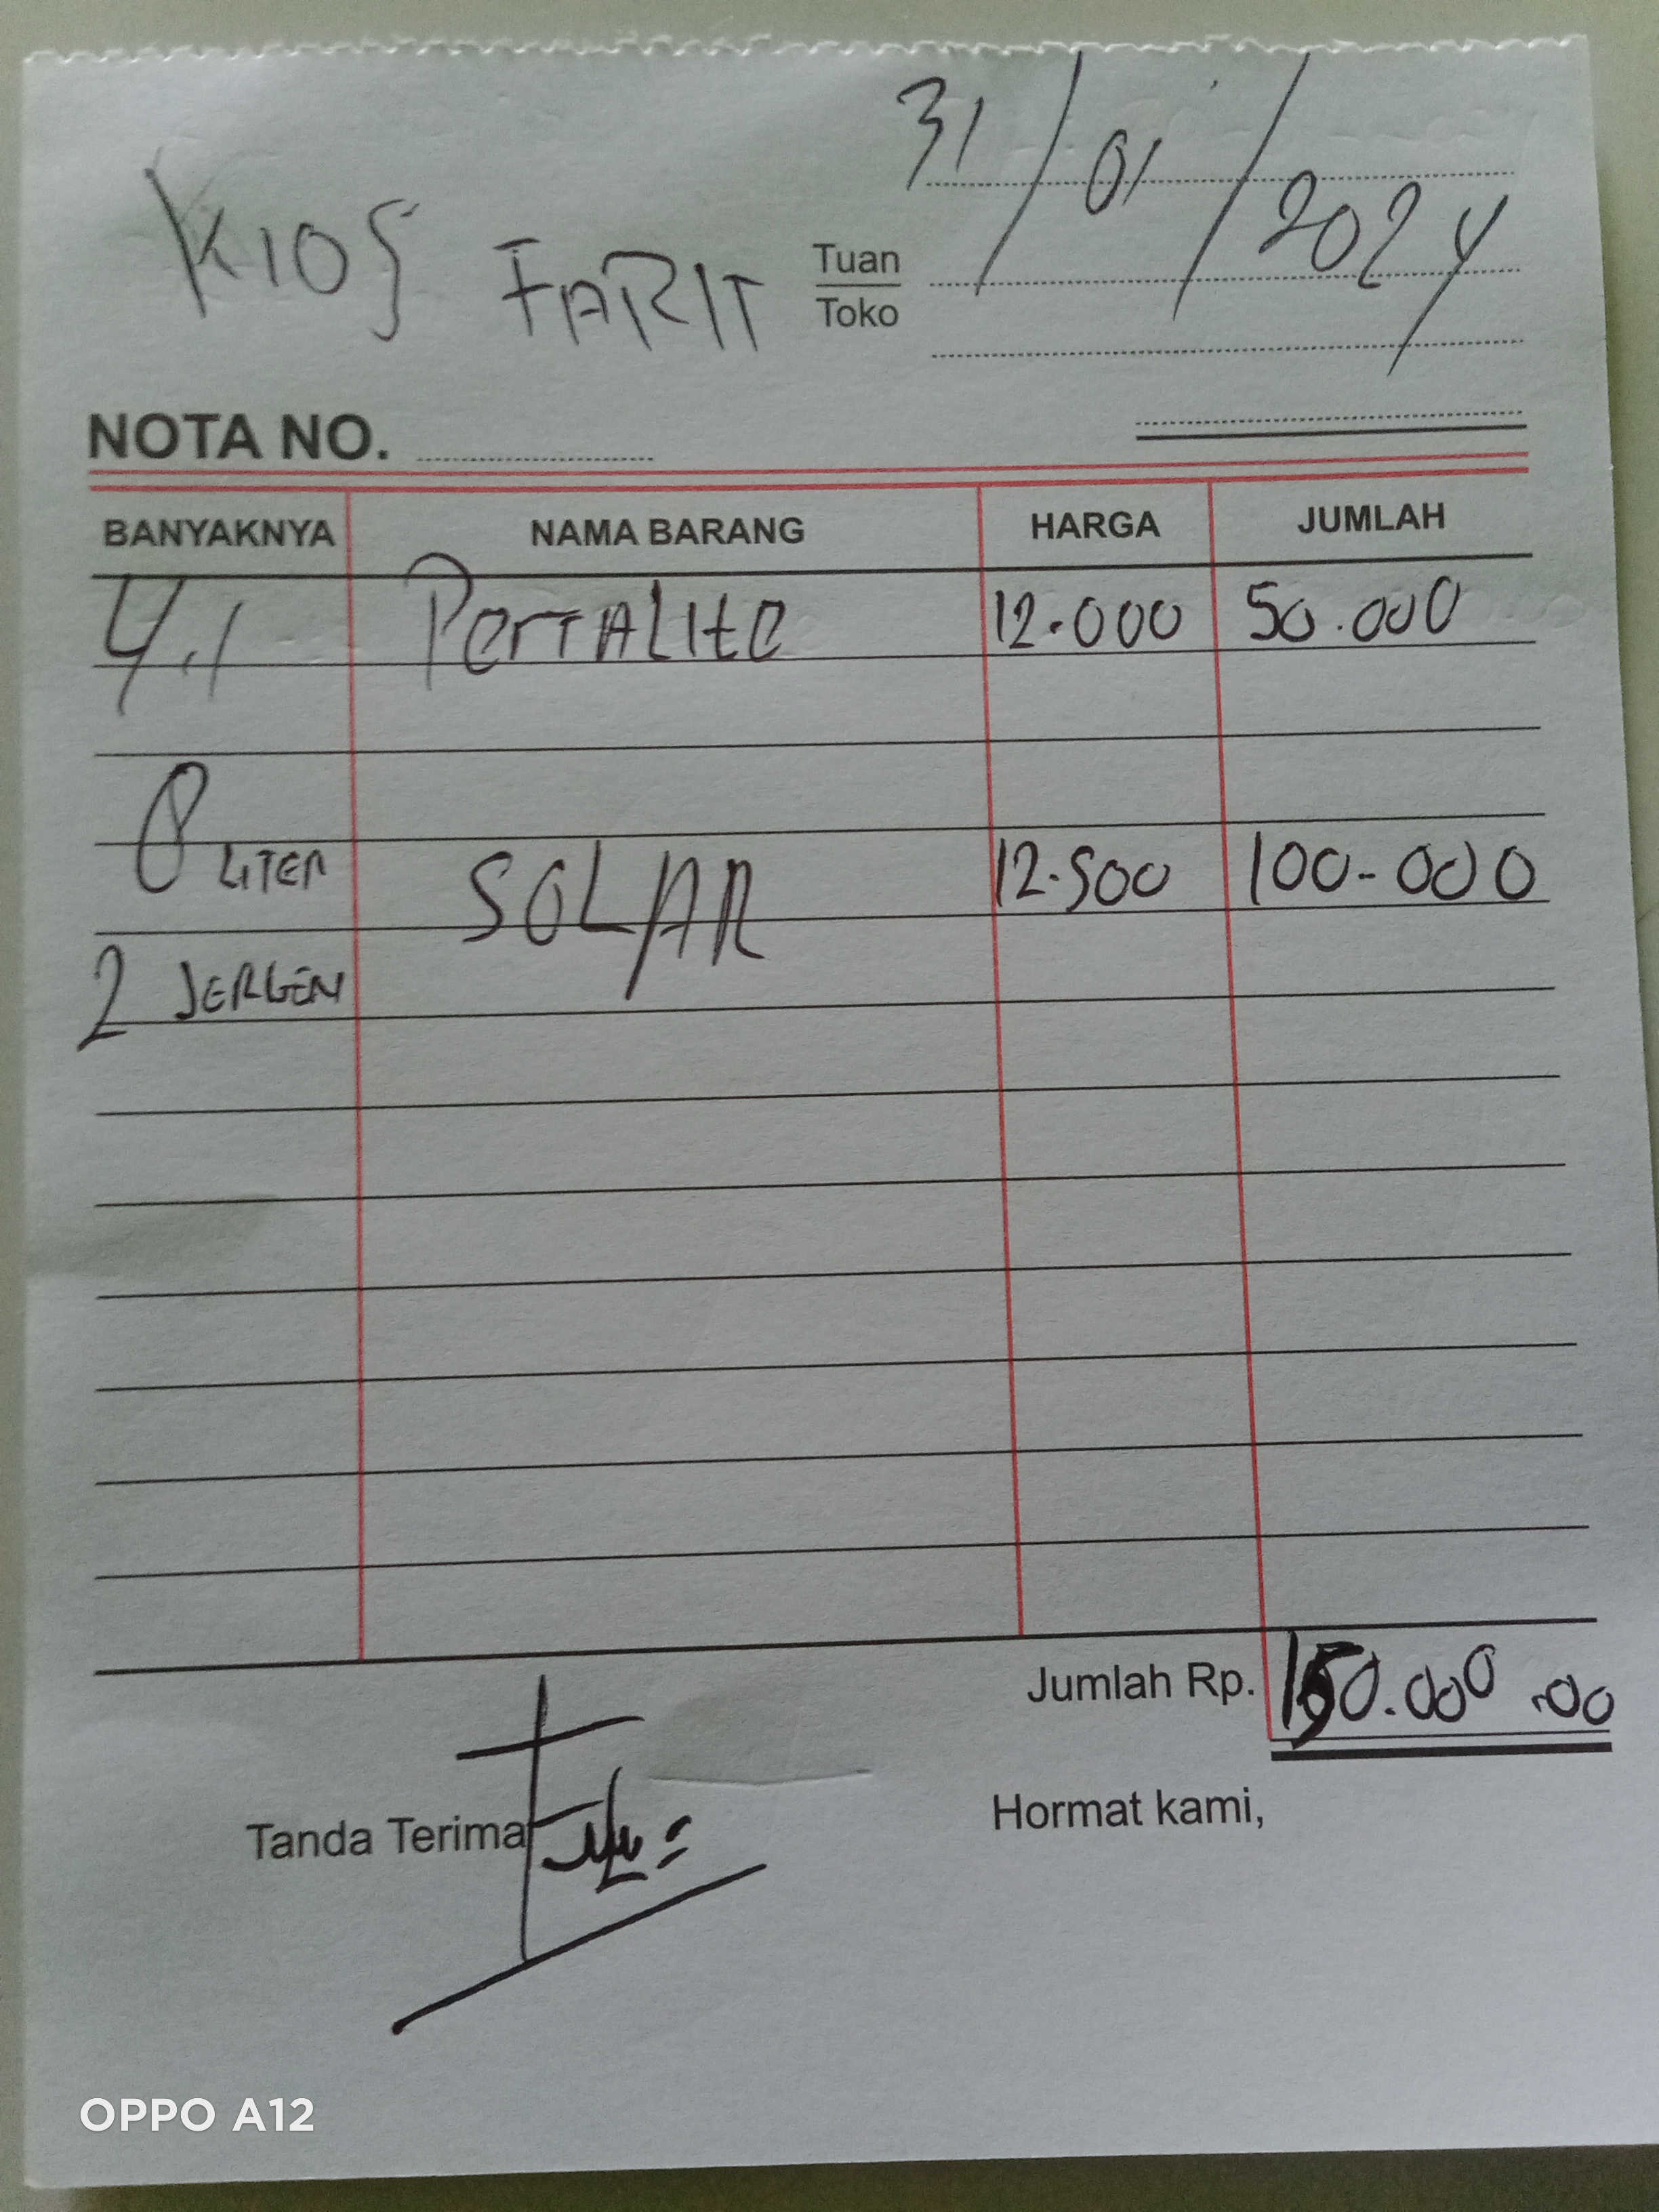 31/01/2024
KIOS FARIT
Tuan
Toko
NOTA NO.
BANYAKNYA NAMA BARANG HARGA JUMLAH
4,1 PerTALITe 12.000 50.000
8 LITER SOLAR 12.500 100-000
2 JERGEN
Jumlah Rp. 150.000.00
Tanda Terima
Hormat kami,
OPPO A12